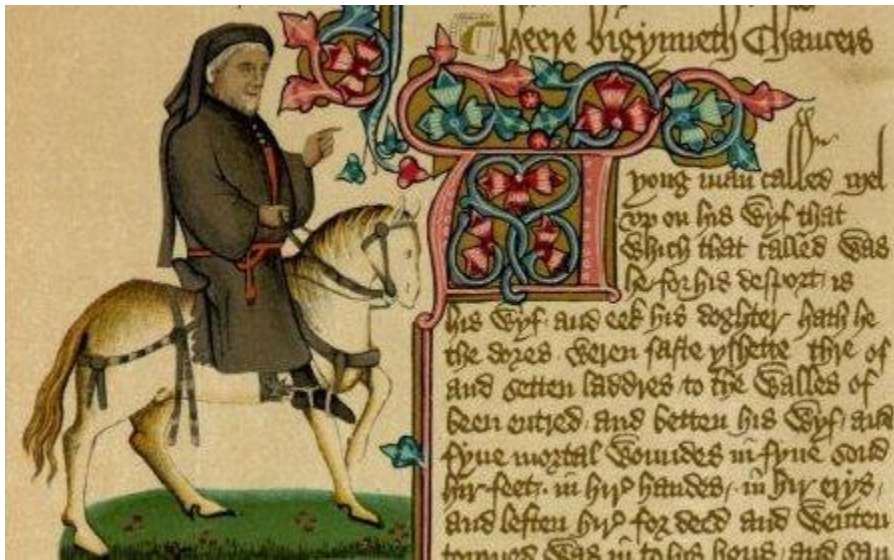 Heere bigynneth Chaucers
A
yong man called Mel
vp on his wyf that
which that called was
he for his desport is
his wyf and eek his doghter hath he
the dores weren faste yshette thre of
and setten laddres to the walles of
been entred and betten his wyf and
fyue mortal woundes in fyue sond
hir feet in hir handes in hir erys
and leften hir for deed and wenten
torned was in to his hous and sau